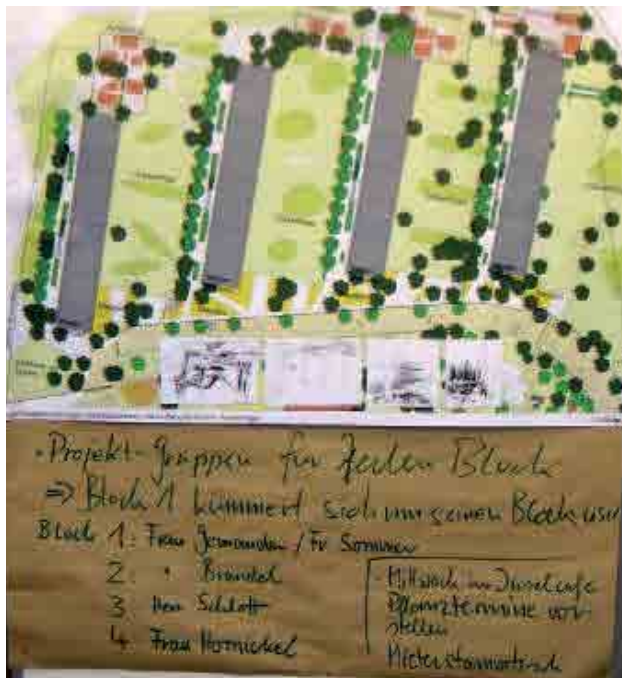 · Projekt-gruppen für jeden Block
=> Block 1 kümmert sich um seinen Block usw
Block 1: Frau / Fr Sommer
2. " Brandel
3 Herr Schlott
4 Frau Hornickel
- Mittwoch im Inselcafe
Pflanztermine vor-
stellen
Mieterstammtisch